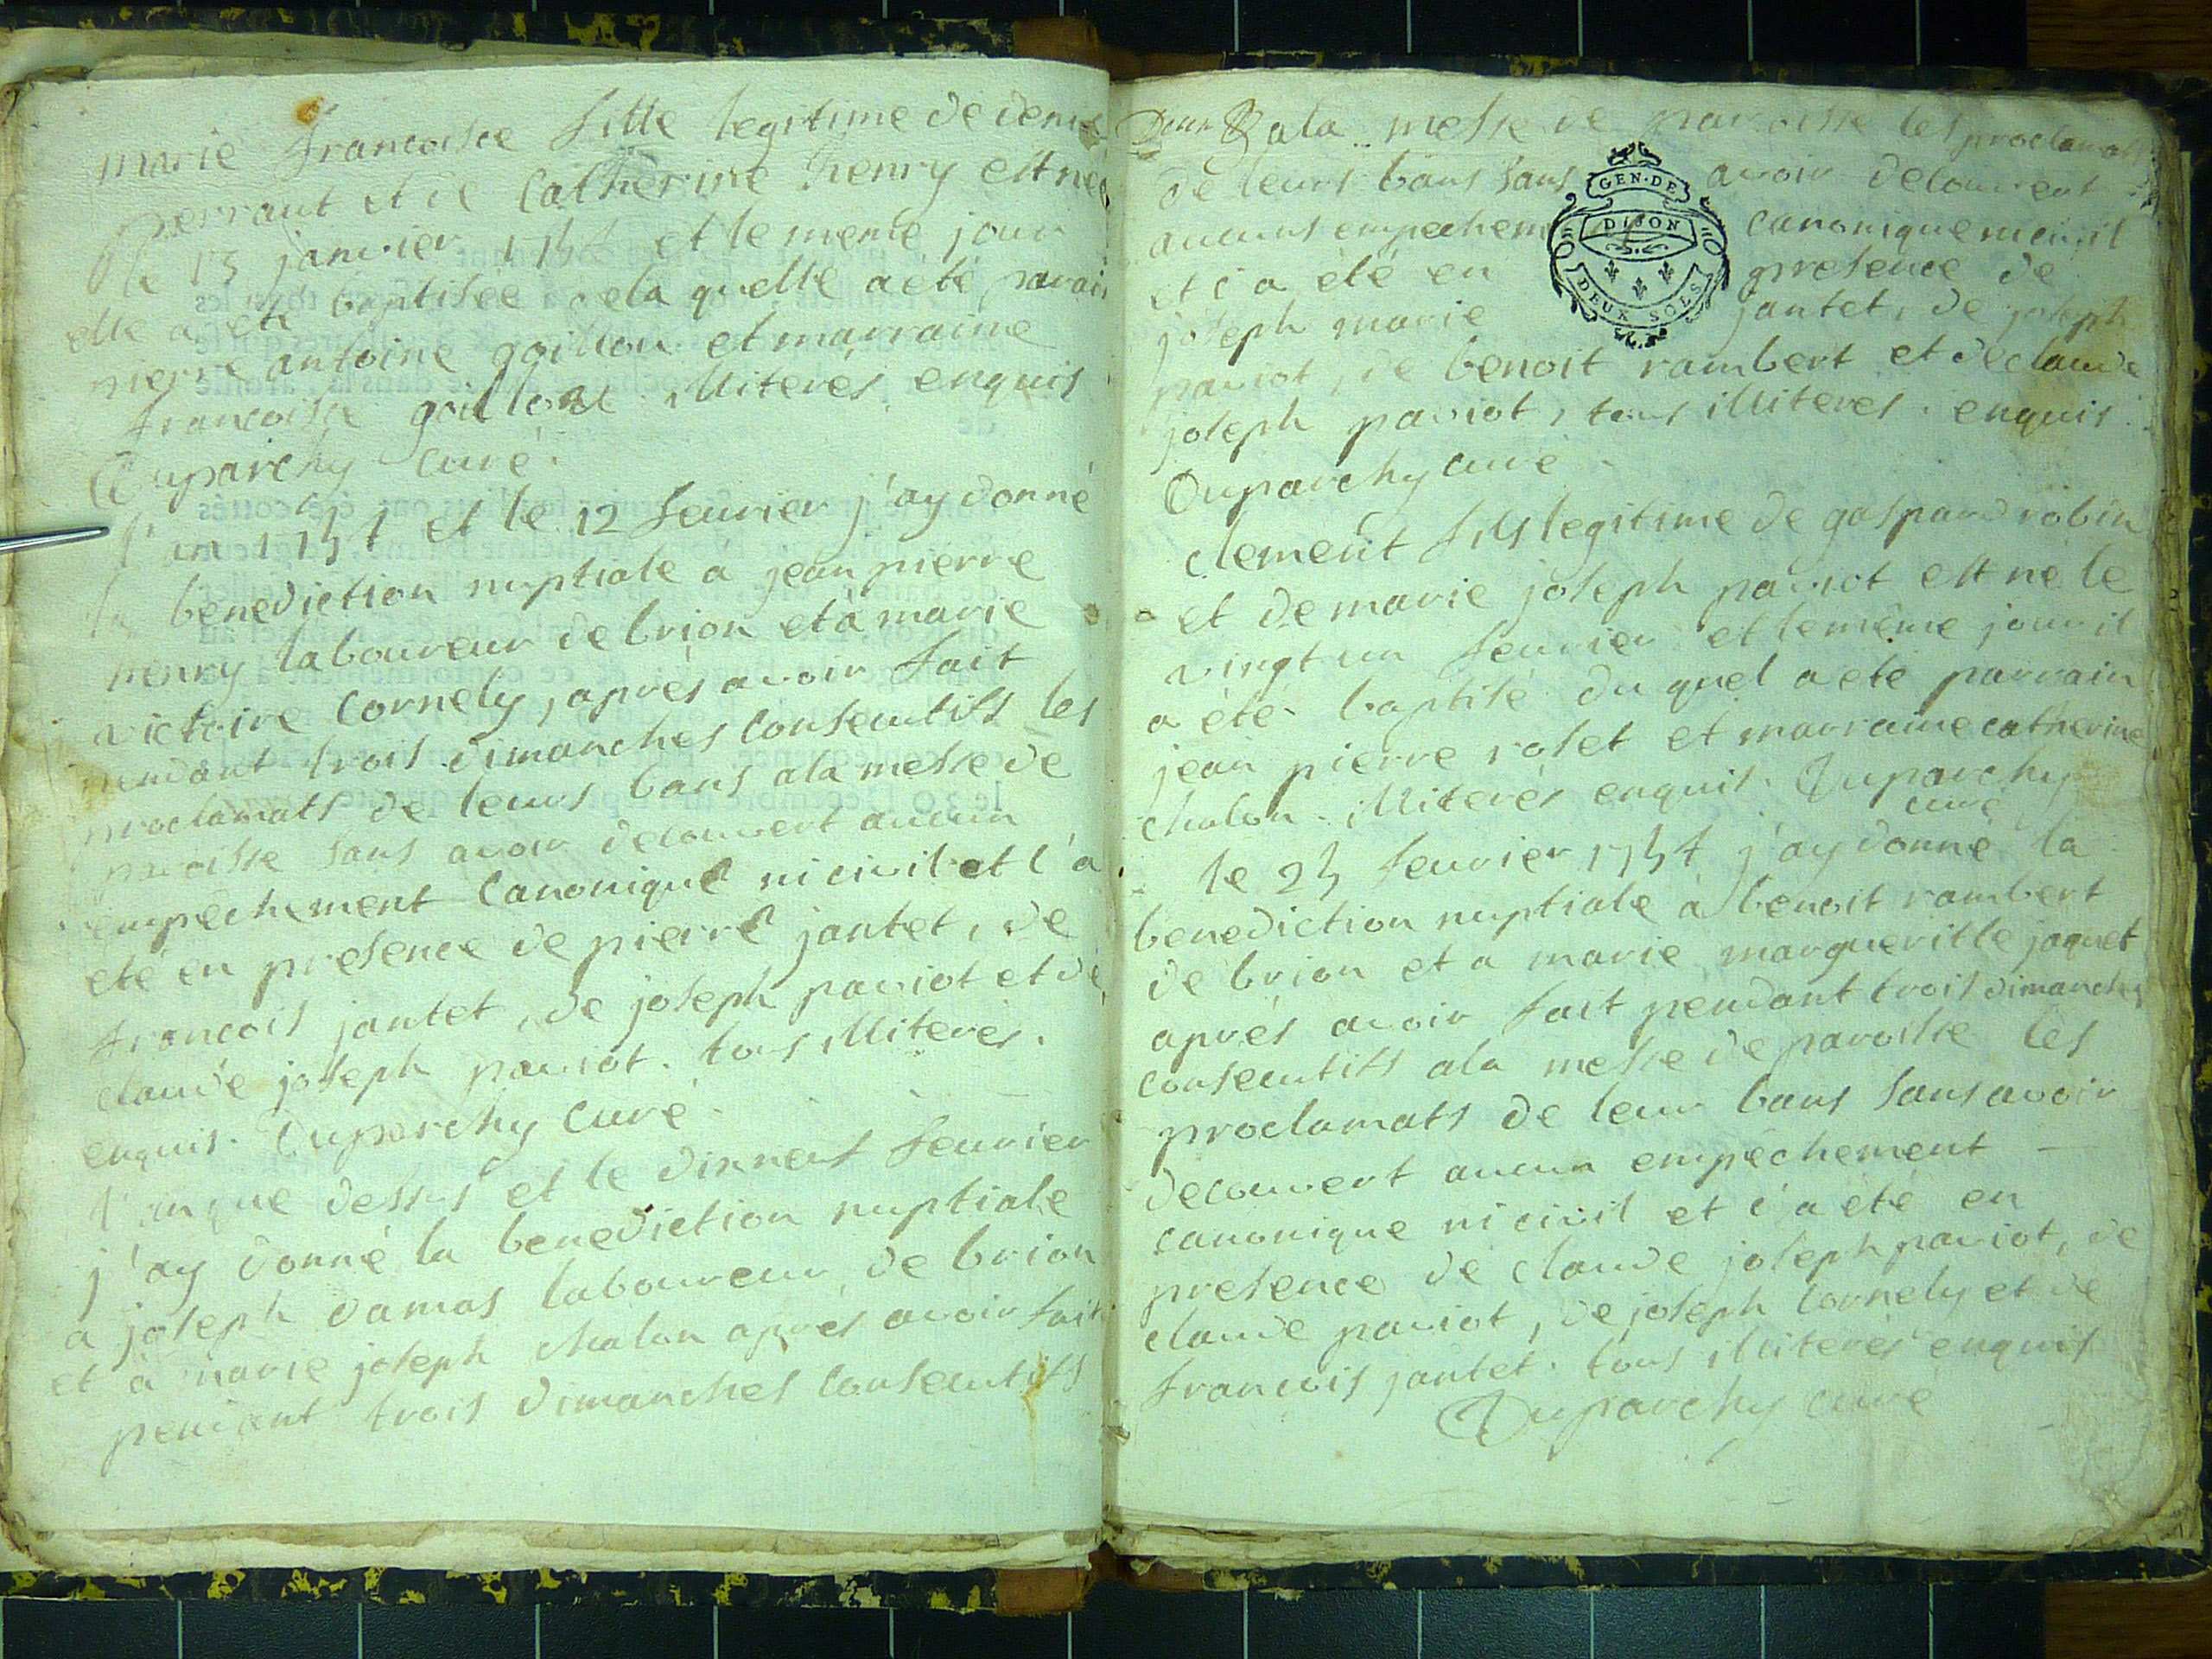 marie francoise fille legitime de denis
perraut et de Catherine henry est née
le 15 janvier 1754 et le meme jour
elle a été baptisée de la quelle a été parain
pierre antoine goillon et marraine
francoise goillon illiteres enquis
Duparchy curé.
l'an 1754 et le 12 fevrier j'ay donné
la benediction nuptiale a jean pierre
henry laboureur de brion et à marie
victoire Cornely, aprés avoir fait
pendant trois dimanches consecutifs les
proclamats de leurs bans a la messe de
paroisse sans avoir decouvert aucun
empechement canonique ni civil et c'a
eté en presence de pierre jantet, de
francois jantet, de joseph paviot et de
claude joseph paviot. tous illiteres.
enquis. Duparchy curé.
l'an que dessus et le dixneuf fevrier
j'ay donné la benediction nuptiale
a joseph damas laboureur de brion
et à marie joseph chalon aprés avoir fait
pendant trois dimanches consecutifs
a la messe de paroisse les proclamats
de leurs bans sans avoir decouvert
aucuns empechem canonique ni civil
et c'a été en presence de
joseph marie jantet, de joseph
paviot, de benoit rambert et de claude
joseph paviot, tous illiteres. enquis.
Duparchy curé.
GEN. DE
DIJON
DEUX SOLS
clement fils legitime de gaspard robin
et de marie joseph paviot est né le
vingt un fevrier et le même jour il
a été baptisé du quel a été parrain
jean pierre rolet et marraine catherine
chalon. illiterés enquis. Duparchy
curé
le 25 fevrier 1754 j'ay donné la
benediction nuptiale à benoit rambert
de brion et a marie margueritte jaquet
aprés avoir fait pendant trois dimanches
consecutifs a la messe de paroisse les
proclamats de leur bans sans avoir
decouvert aucun empêchement
canonique ni civil et c'a été en
presence de claude joseph paviot, de
claude paviot, de joseph Cornely et de
francois jantet. tous illiterés enquis
Duparchy curé